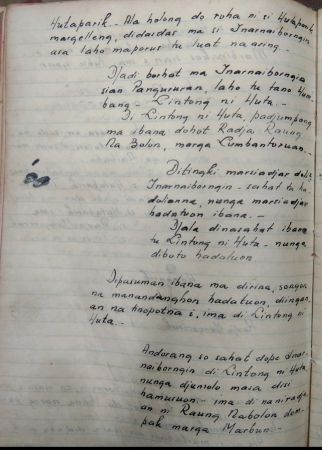 Hutaparik. Ala holong do roha ni si Hutaparik
margelleng, didaidas ma si Inarnaiborngin
asa laho maporus tu luat naasing.-
Djadi borhat ma Inarnaiborngin
sian Pangururan, laho tu tano Hum
bang - Lintong ni Huta.-
Di Lintong ni Huta, padjumpang
ma ibana dohot Radja Raung
Na Bolon, marga Lumbantoruan.-
Ditingki marsiadjar
Inarnaiborngin - sahat tu ha
dolianna, nunga marsiadjar
hadatuon ibana.-
Djala dinasahat ibana
tu Lintong ni Huta - nunga
dibotu hadatuon
Dipasuman ibana ma dirina, songon
na manandanghon hadatuon, diingan
an na hnopotna i, ima di Lintong ni
Huta.-
Andorang so sahat dope Inar-
naiborngin di Lintong ni Huta
nunga djumolo masa disi
hamusuon - ima di naniradja
an ni Raung Nabolon dom
pak marga Marbun.-